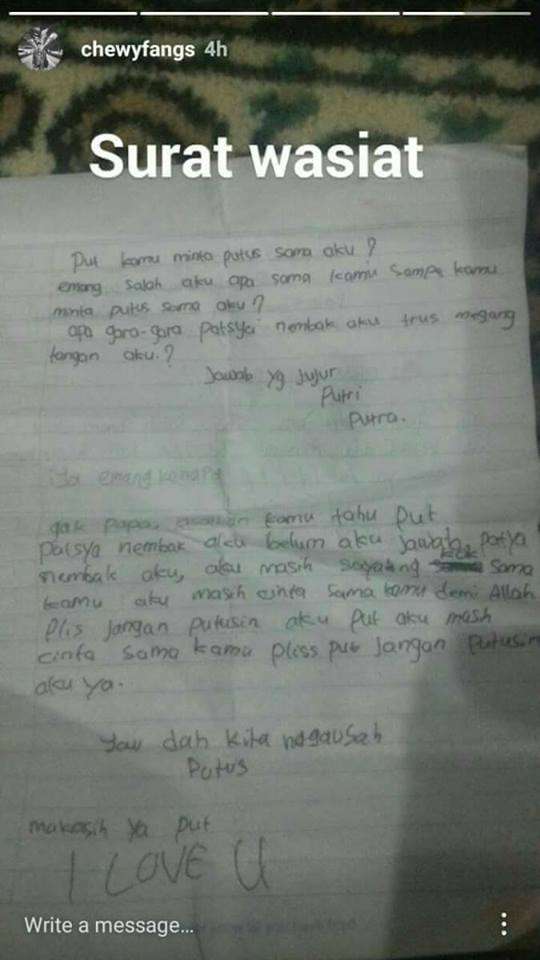 chewyfangs 4h
Surat wasiat
Put kamu minta putus sama aku ?
emang salah aku apa sama kamu sampe kamu
minta putus sama aku ?
apa gara-gara patsya nembak aku trus megang
tangan aku.?
Jawab yg jujur
Putri
Putra.
iya emang kenapa
gak papa, kamu tahu Put
patsya nembak aku belum aku jawab, patya
nembak aku, aku masih sayang kok sama
kamu aku masih cinta sama kamu demi Allah
Plis jangan putusin aku put aku masih
cinta sama kamu pliss put jangan putusin
aku ya.
yau dah kita nggausah
Putus
makasih ya put
I LOVE U
Write a message...